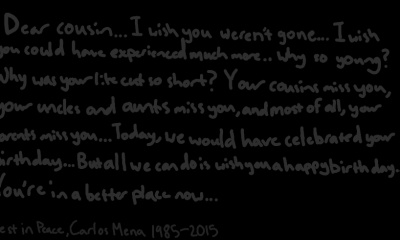 Dear cousin... I wish you weren't gone... I wish
you could have experienced much more.. Why so young?
Why was your life cut so short? Your cousins miss you,
your uncles and aunts miss you, and most of all, your
parents miss you... Today, we would have celebrated your
birthday... But all we can do is wish you a happy birthday.
You're in a better place now...
Rest in Peace, Carlos Mena 1985-2015